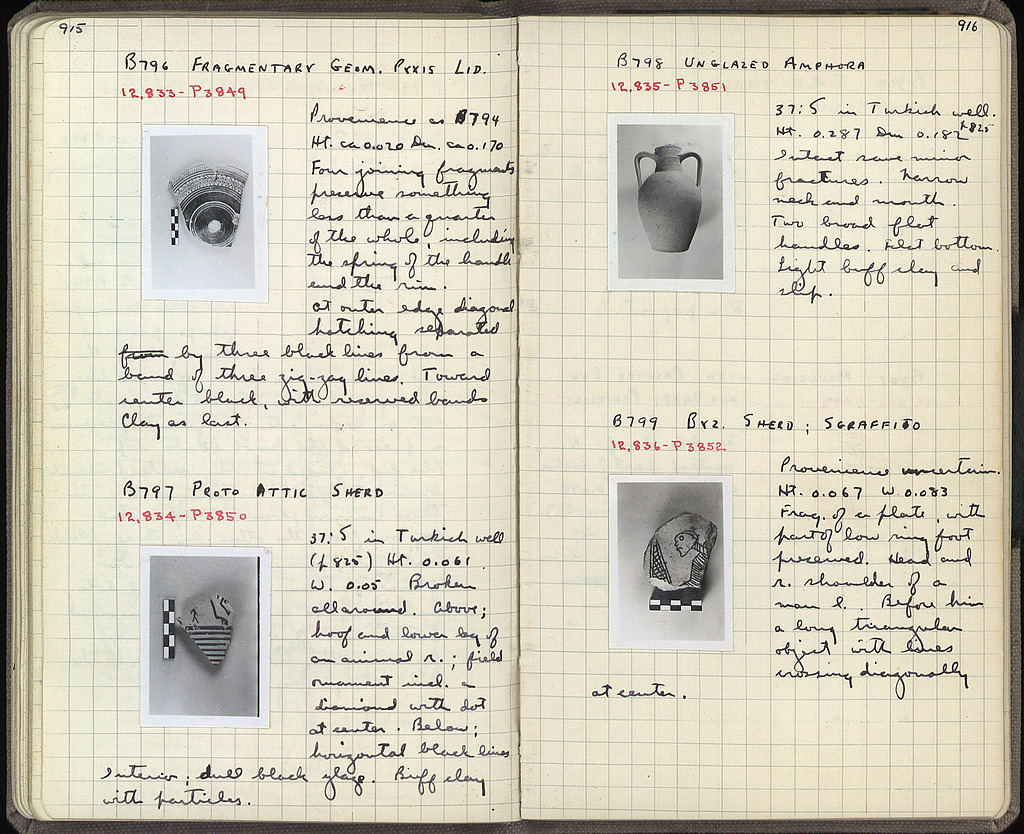 915
B796 FRAGMENTARY GEOM. PYXIS LID.
12,833-P3849
Provenience as B794
Ht. ca 0.020 Dm. ca 0.170
Four joining fragments
preserve something
less than a quarter
of the whole, including
the spring of the handle
and the rim.
At outer edge diagonal
hatching separated
from by three black lines from a
band of three zig-zag lines. Toward
center black, with reserved bands
Clay as last.
B797 PROTO ATTIC SHERD
12,834-P3850
37:5 in Turkish well
(p 825) Ht. 0.061
W. 0.05 Broken
all around. Above;
hoof and lower leg of
an animal r.; field
ornament incl. a
diamond with dot
at center. Below;
horizontal black lines
Interior; dull black glaze. Buff clay
with particles.
916
B798 UNGLAZED AMPHORA
12,835-P3851
37:5 in Turkish well.
p 825
Ht. 0.287 Dm 0.182
Intact save minor
fractures. Narrow
neck and mouth.
Two broad flat
handles. Flat bottom.
Light buff clay and
slip.
B799 BYZ. SHERD; SGRAFFITO
12,836-P3852
Provenience uncertain.
Ht. 0.067 W. 0.083
Frag. of a plate, with
part of low ring foot
preserved. Head and
r. shoulder of a
man l. Before him
a long triangular
object with lines
crossing diagonally
at center.